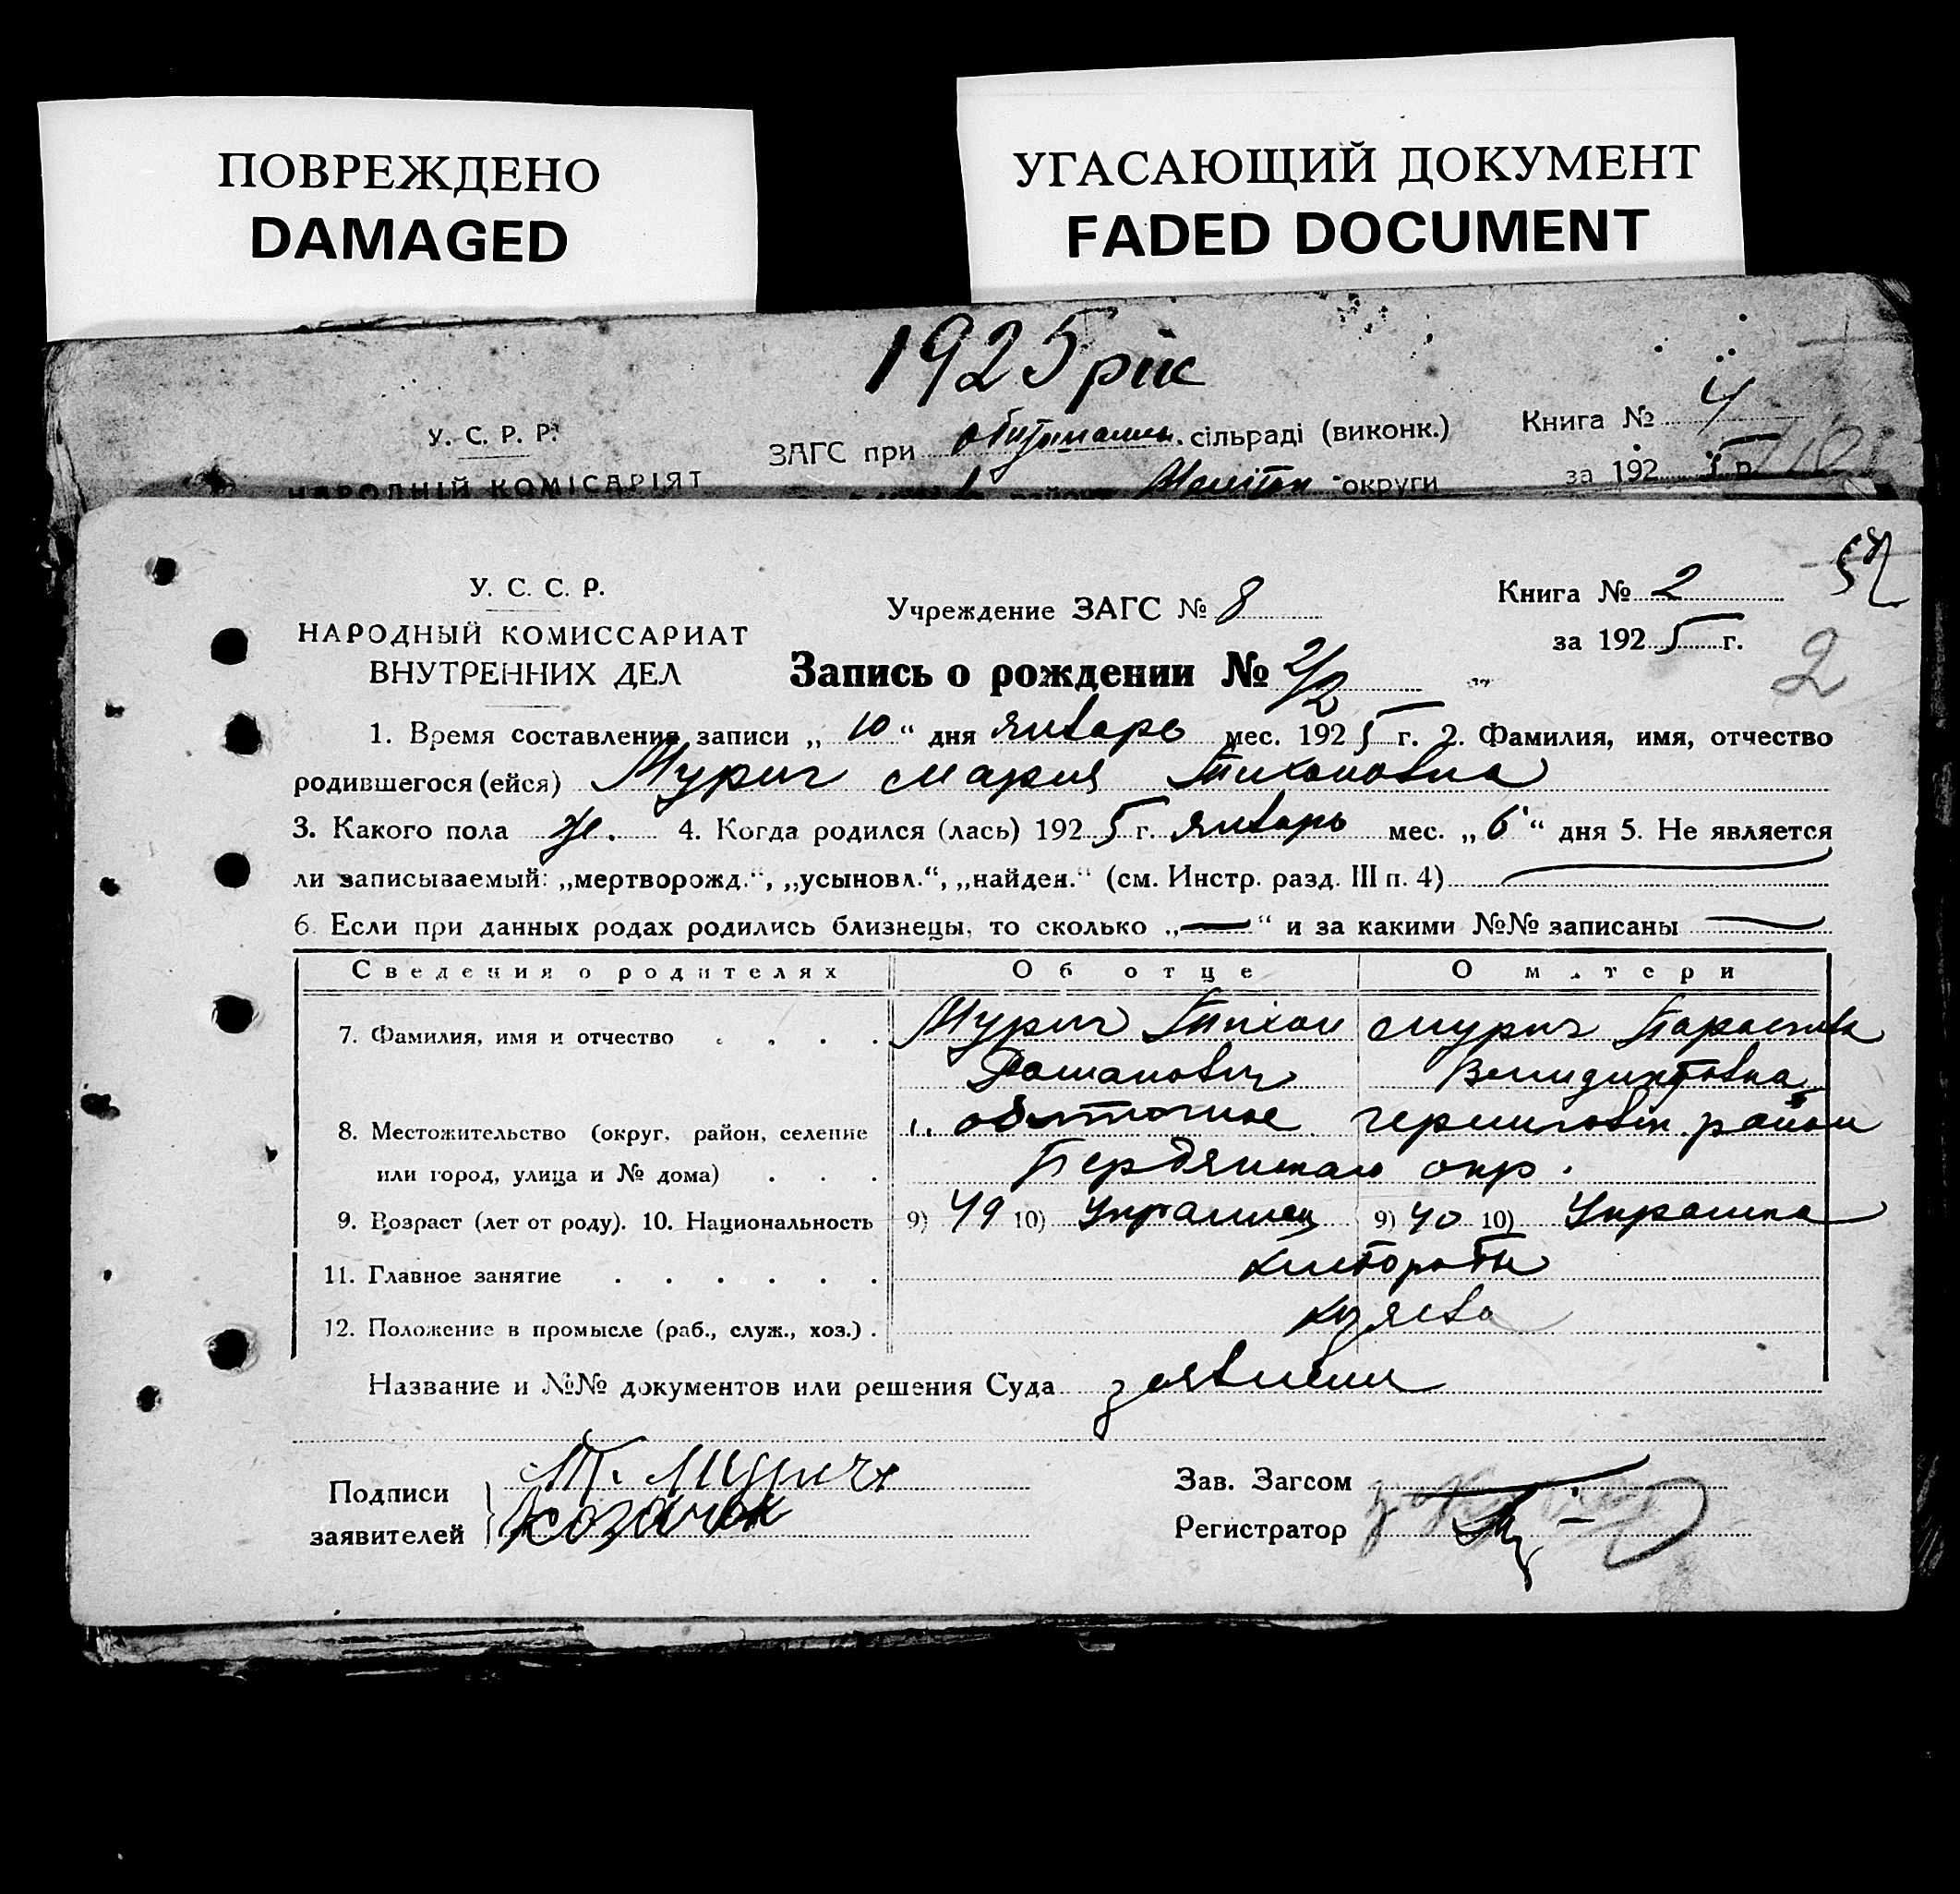 ПОВРЕЖДЕНО
DAMAGED
УГАСАЮЩИЙ ДОКУМЕНТ
FADED DOCUMENT
1925 рік
У. С. Р. Р.
НАРОДНІЙ КОМІСАРІЯТ
ЗАГС при сільраді (виконк.)
округи
Книга № 4
за 192 5 р.
У. С. С. Р.
НАРОДНЫЙ КОМИССАРИАТ
ВНУТРЕННИХ ДЕЛ
Учреждение ЗАГС № 8
Книга № 2
за 192 5 г.
2
Запись о рождении № 2/2
1. Время составления записи „ 10 “ дня январь мес. 192 5 г. 2. Фамилия, имя, отчество
родившегося (ейся) Мурич Мария Тихоновна
3. Какого пола ж. 4. Когда родился (лась) 192 5 г. январь мес. „ 6 “ дня 5. Не является
ли записываемый: „мертворожд.“, „усыновл.“, „найден.“ (см. Инстр. разд. III п. 4)
6. Если при данных родах родились близнецы, то сколько „—“ и за какими №№ записаны —
Сведения о родителях Об отце О матери
7. Фамилия, имя и отчество . . . . Мурич Тихон Мурич
8. Местожительство (округ, район, селение обиточное черниговск. район
или город, улица и № дома) . . . Бердянскаго окр.
9. Возраст (лет от роду). 10. Национальность 9) 49 10) Украинец 9) 40 10) Украинка
11. Главное занятие . . . . . .
12. Положение в промысле (раб., служ., хоз.) .
Название и №№ документов или решения Суда
Подписи
заявителей
Т. Мурич
Козачок
Зав. Загсом
Регистратор